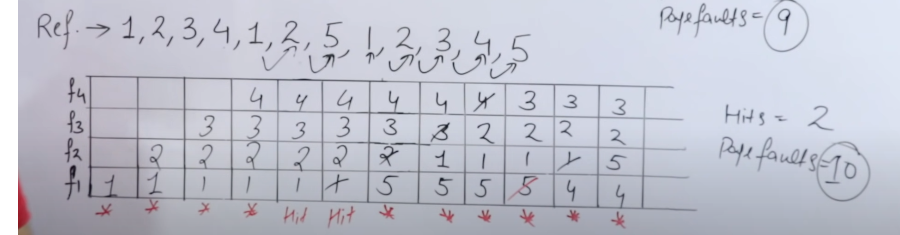 Ref. → 1, 2, 3, 4, 1, 2, 5, 1, 2, 3, 4, 5
Page faults = 9
f4 4 4 4 4 4 4 3 3 3
f3 3 3 3 3 3 3 2 2 2 2
f2 2 2 2 2 2 2 1 1 1 1 5
f1 1 1 1 1 1 1 5 5 5 5 4 4
* * * * Hit Hit * * * * * *
Hits = 2
Page faults = 10